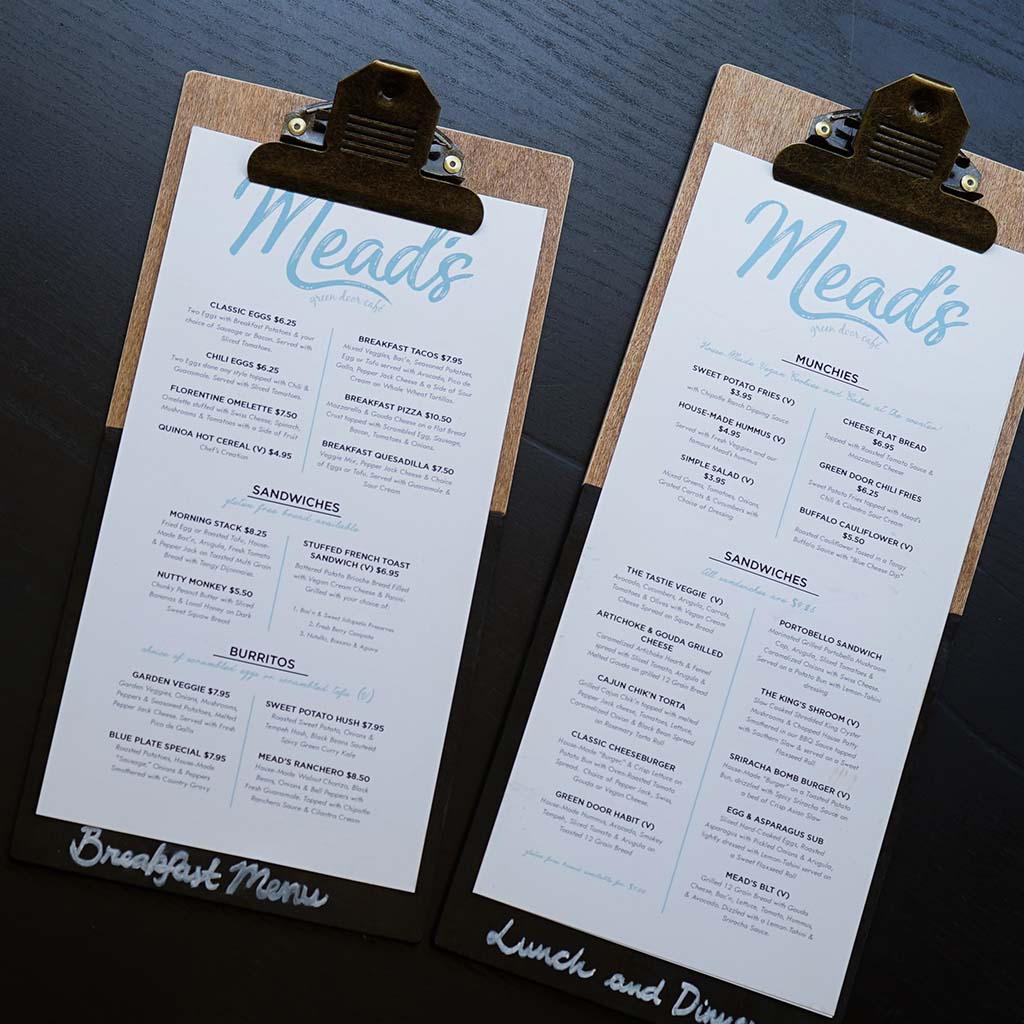 Mead's
green door café
CLASSIC EGGS $6.25
Two Eggs with Breakfast Potatoes & your
choice of Sausage or Bacon. Served with
Sliced Tomatoes.
CHILI EGGS $6.25
Two Eggs done any style topped with Chili &
Guacamole. Served with Sliced Tomatoes.
FLORENTINE OMELETTE $7.50
Omelette stuffed with Swiss Cheese, Spinach,
Mushrooms & Tomatoes with a Side of Fruit
QUINOA HOT CEREAL (V) $4.95
Chef's Creation
BREAKFAST TACOS $7.95
Mixed Veggies, Bac'n, Seasoned Potatoes,
Egg or Tofu served with Avocado, Pico de
Gallo, Pepper Jack Cheese & a Side of Sour
Cream on Whole Wheat Tortillas.
BREAKFAST PIZZA $10.50
Mozzarella & Gouda Cheese on a Flat Bread
Crust topped with Scrambled Egg, Sausage,
Bacon, Tomatoes & Onions.
BREAKFAST QUESADILLA $7.50
Veggie Mix, Pepper Jack Cheese & Choice
of Eggs or Tofu. Served with Guacamole &
Sour Cream
SANDWICHES
gluten free bread available
MORNING STACK $8.25
Fried Egg or Roasted Tofu, House-
Made Bac'n, Arugula, Fresh Tomato
& Pepper Jack on Toasted Multi Grain
Bread with Tangy Dijonnaise.
NUTTY MONKEY $5.50
Chunky Peanut Butter with Sliced
Bananas & Local Honey on Dark
Sweet Squaw Bread
STUFFED FRENCH TOAST
SANDWICH (V) $6.95
Battered Potato Brioche Bread Filled
with Vegan Cream Cheese & Panini-
Grilled with your choice of:
1. Bac'n & Sweet Jalapeño Preserves
2. Fresh Berry Compote
3. Nutella, Banana & Agave
BURRITOS
choice of scrambled eggs or scrambled tofu (v)
GARDEN VEGGIE $7.95
Garden Veggies, Onions, Mushrooms,
Peppers & Seasoned Potatoes, Melted
Pepper Jack Cheese. Served with Fresh
Pico de Gallo
BLUE PLATE SPECIAL $7.95
Roasted Potatoes, House-Made
"Sausage," Onions & Peppers
Smothered with Country Gravy
SWEET POTATO HUSH $7.95
Roasted Sweet Potato, Onions &
Tempeh Hash, Black Beans Sautéed
Spicy Green Curry Kale
MEAD'S RANCHERO $8.50
House-Made Walnut Chorizo, Black
Beans, Onions & Bell Peppers with
Fresh Guacamole. Topped with Chipotle
Ranchero Sauce & Cilantro Cream
Breakfast Menu
Mead's
green door café
MUNCHIES
House-Made Vegan Cookies and Cakes at the counter
SWEET POTATO FRIES (V)
$3.95
with Chipotle Ranch Dipping Sauce
HOUSE-MADE HUMMUS (V)
$4.95
Served with Fresh Veggies and our
famous Mead's hummus
SIMPLE SALAD (V)
$3.95
Mixed Greens, Tomatoes, Onions,
Grated Carrots & Cucumbers with
Choice of Dressing
CHEESE FLAT BREAD
$6.95
Topped with Roasted Tomato Sauce &
Mozzarella Cheese
GREEN DOOR CHILI FRIES
$6.25
Sweet Potato Fries topped with Mead's
Chili & Cilantro Sour Cream
BUFFALO CAULIFLOWER (V)
$5.50
Roasted Cauliflower Tossed in a Tangy
Buffalo Sauce with "Blue Cheese Dip"
SANDWICHES
All sandwiches are $9.25
THE TASTIE VEGGIE (V)
Avocado, Cucumbers, Arugula, Carrots,
Tomatoes & Olives with Vegan Cream
Cheese Spread on Squaw Bread
ARTICHOKE & GOUDA GRILLED
CHEESE
Caramelized Artichoke Hearts & Fennel
spread with Sliced Tomato, Arugula &
Melted Gouda on grilled 12 Grain Bread
CAJUN CHIK'N TORTA
Grilled Cajun Chik'n topped with melted
Pepper Jack cheese, Tomatoes, Lettuce,
Caramelized Onion & Black Bean Spread
on Rosemary Torta Roll
CLASSIC CHEESEBURGER
House-Made "Burger" & Crisp Lettuce on
Potato Bun with Oven-Roasted Tomato
Spread. Choice of Pepper Jack, Swiss,
Gouda or Vegan Cheese.
GREEN DOOR HABIT (V)
House-Made Hummus, Avocado, Smokey
Tempeh, Sliced Tomato & Arugula on
Toasted 12 Grain Bread
gluten free bread available for $1.00
PORTOBELLO SANDWICH
Marinated Grilled Portobello Mushroom
Cap, Arugula, Sliced Tomatoes &
Caramelized Onions with Swiss Cheese.
Served on a Potato Bun with Lemon-Tahini
dressing
THE KING'S SHROOM (V)
Slow Cooked Shredded King Oyster
Mushrooms & Chopped House Patty
Smothered in our BBQ Sauce topped
with Southern Slaw & served on a Sweet
Flaxseed Roll
SRIRACHA BOMB BURGER (V)
House-Made "Burger" on a Toasted Potato
Bun, drizzled with Spicy Sriracha Sauce on
a bed of Crisp Asian Slaw
EGG & ASPARAGUS SUB
Sliced Hard-Cooked Eggs, Roasted
Asparagus with Pickled Onions & Arugula,
lightly dressed with Lemon-Tahini served on
a Sweet Flaxseed Roll
MEAD'S BLT (V)
Grilled 12 Grain Bread with Gouda
Cheese, Bac'n, Lettuce, Tomato, Hummus,
& Avocado. Dizzled with a Lemon-Tahini &
Sriracha Sauce.
Lunch and Dinner